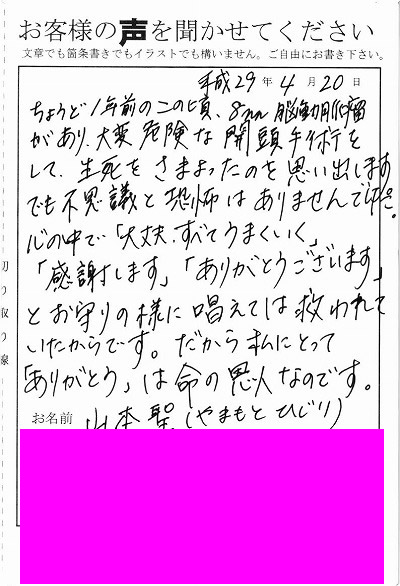 お客様の声を聞かせてください
文章でも箇条書きでもイラストでも構いません。ご自由にお書き下さい。
平成29年4月20日
ちょうど1年前のこの頃、8mm脳動脈瘤
があり、大変危険な開頭手術を
して、生死をさまよったのを思い出します
でも不思議と恐怖はありませんでした。
心の中で「大丈夫、すべてうまくいく」
「感謝します」「ありがとうございます」
とお守りの様に唱えては救われて
いたからです。だから私にとって
「ありがとう」は命の恩人なのです。
お名前 山本聖(やまもとひじり)
切り取り線